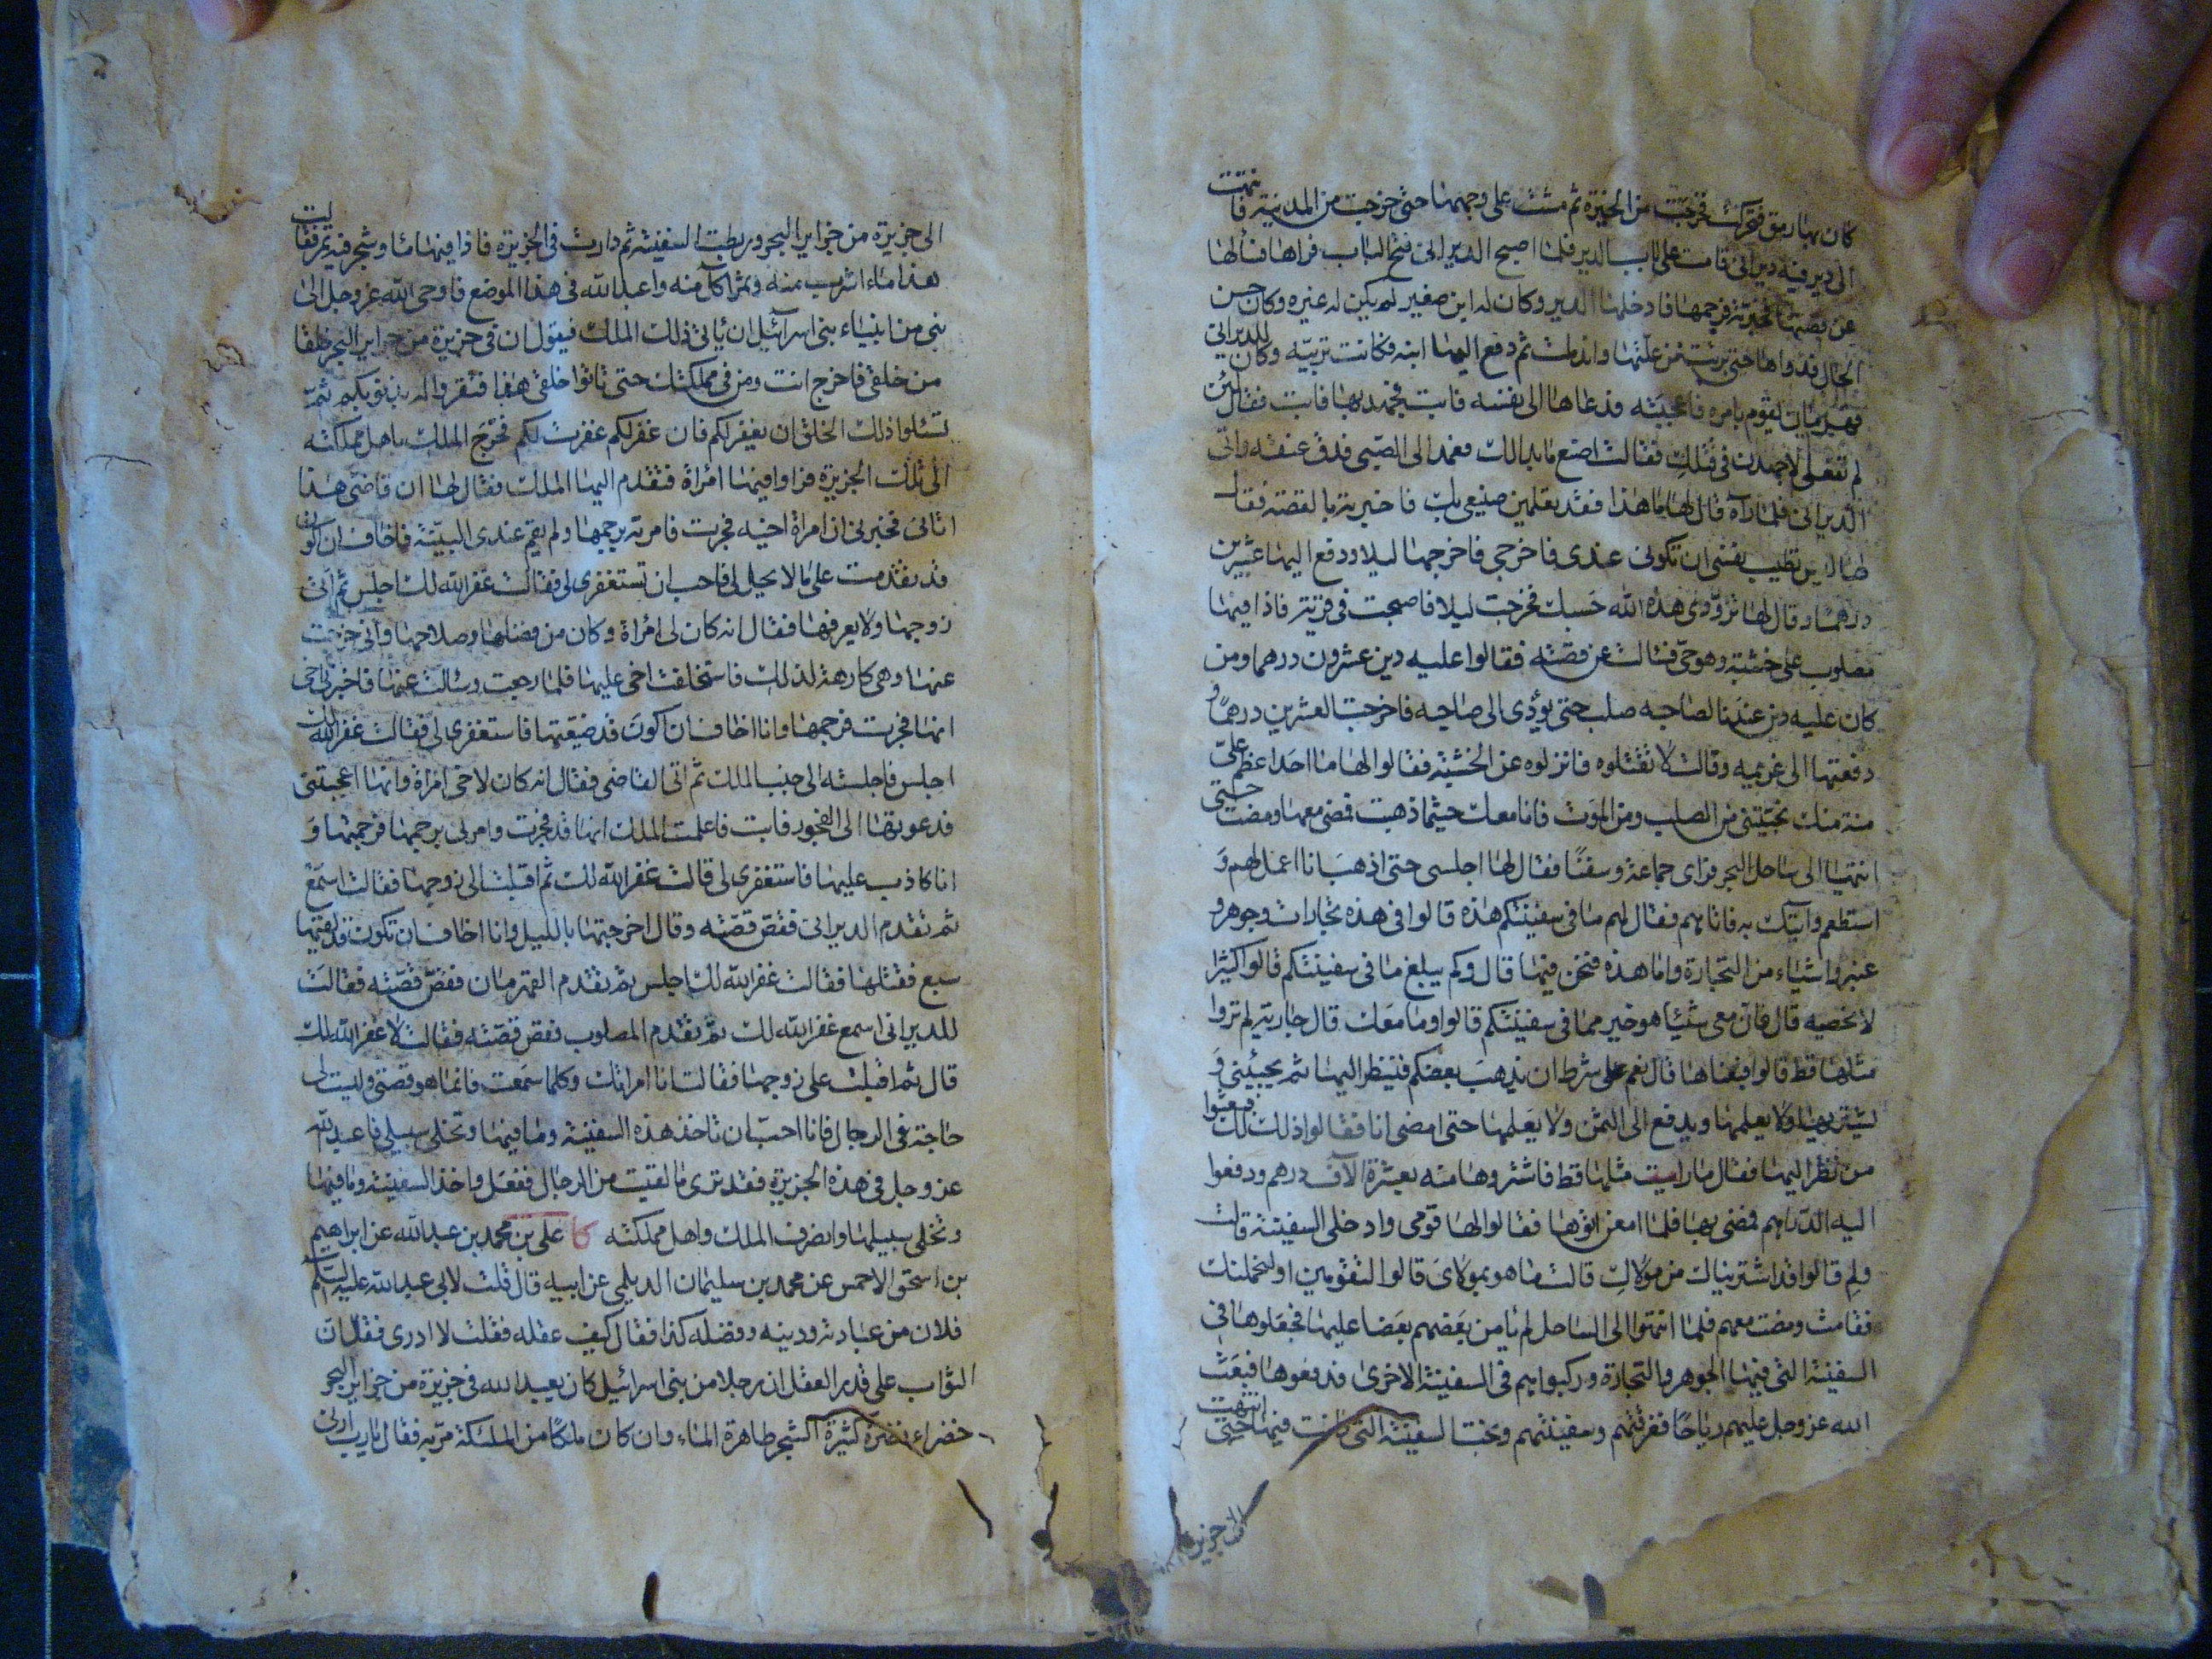 كان بها رمق فتحركت فخرجت من الحفيرة ثم مشت على وجهها حتى خرجت من المدينة فانتهت
الى دير فيه ديراني فباتت على باب الدير فلما اصبح الديراني فتح الباب فراها فسألها
عن قصتها فخبرته فرحمها فادخلها الدير وكان له ابن صغير لم يكن له غيره وكان حسن
الحال فداواها حتى برئت من علتها واندملت ثم دفع اليها ابنه فكانت تربيه وكان للديراني
قهرمان يقوم بامره فاعجبته فدعاها الى نفسه فابت فجهد بها فابت فقال لئن
لم تفعلي لاجهدن في قتلك فقالت اصنع ما بدا لك فعمد الى الصبي فدق عنقه واتى
الديراني فلما رآه قال لها ما هذا فقد تعلمين صنيعي بك فاخبرته بالقصة فقال
لها ليس تطيب نفسي ان تكوني عندي فاخرجي فاخرجها ليلا ودفع اليها عشرين
درهما وقال لها تزودي هذه الله حسبك فخرجت ليلا فاصبحت في قرية فاذا فيها
مصلوب على خشبة وهو حي فسالت عن قصته فقالوا عليه دين عشرون درهما ومن
كان عليه دين عندنا لصاحبه صلب حتى يؤدى الى صاحبه فاخرجت العشرين درهما و
دفعتها الى غريمه وقالت لا تقتلوه فانزلوه عن الخشبة فقال لها ما احد اعظم علي
منة منك نجيتني من الصلب ومن الموت فانا معك حيثما ذهبت فمضى معها ومضت حتى
انتهيا الى ساحل البحر فراى جماعة وسفنا فقال لها اجلسي حتى اذهب انا اعمل لهم و
استطعم وآتيك به فاتاهم فقال لهم ما في سفينتكم هذه قالوا في هذه تجارات وجوهر و
عنبر واشياء من التجارة واما هذه فنحن فيها قال وكم يبلغ ما في سفينتكم قالوا كثيرا
لا نحصيه قال فان معي شيئا هو خير مما في سفينتكم قالوا وما معك قال جارية لم تروا
مثلها قط قالوا فبعناها قال نعم على شرط ان يذهب بعضكم فينظر اليها ثم يجيئني و
يشتريها ولا يعلمها ويدفع الى الثمن ولا يعلمها حتى امضي انا فقالوا ذلك لك فبعثوا
من نظر اليها فقال ما رايت مثلها قط فاشتروها منه بعشرة الآف درهم ودفعوا
اليه الدراهم فمضى بها فلما امعن اتوها فقالوا لها قومي وادخلي السفينة قالت
ولم قالوا قد اشتريناك من مولاك قالت ما هو بمولاي قالوا لتقومين او لنحملنك
فقامت ومضت معهم فلما انتهوا الى الساحل لم يامن بعضهم بعضا عليها فجعلوها في
السفينة التي فيها الجوهر والتجارة وركبوا هم في السفينة الاخرى فدفعوها فبعث
الله عز وجل عليهم رياحا فغرقتهم وسفينتهم ونجت السفينة التي كانت فيها حتى انتهت
الى جزيرة
الى جزيرة من جزاير البحر وربطت السفينة ثم دارت في الجزيرة فاذا فيها ماء وشجر فيه ثمر فقالت
هذا ماء اشرب منه وثمر اكل منه واعبد الله في هذا الموضع فاوحى الله عز وجل الى
نبي من انبياء بني اسرائيل ان ياتي ذلك الملك فيقول ان في جزيرة من جزاير البحر خلقا
من خلقي فاخرج انت ومن في مملكتك حتى تاتوا خلقي هذا فتقروا له بذنوبكم ثم
تسئلوا ذلك الخلق ان يغفر لكم فان غفر لكم غفرت لكم فخرج الملك باهل مملكته
الى تلك الجزيرة فراوا فيها امراة فتقدم اليها الملك فقال لها ان قاضي هذا
اتاني فخبرني ان امراة اخيه فجرت فامرته برجمها ولم يقم عندي البينة فاخاف ان اكون
قد تقدمت على ما لا يحل لي فاحب ان تستغفري لي فقالت غفر الله لك اجلس ثم اتى
زوجها ولا يعرفها فقال انه كان لي امراة وكان من فضلها وصلاحها واني خرجت
عنها وهي كارهة لذلك فاستخلفت اخي عليها فلما رجعت وسالت عنها فاخبرني اخي
انها فجرت فرجمها وانا اخاف ان اكون قد ضيعتها فاستغفري لي فقالت غفر الله لك
اجلس فاجلسته الى جنب الملك ثم اتى القاضي فقال انه كان لاخي امراة وانها اعجبتني
فدعوتها الى الفجور فابت فاعلمت الملك انها قد فجرت وامرني برجمها فرجمتها و
انا كاذب عليها فاستغفري لي قالت غفر الله لك ثم اقبلت الى زوجها فقالت اسمع
ثم تقدم الديراني فقص قصته وقال اخرجتها بالليل وانا اخاف ان تكون قد لقيها
سبع فقتلها فقالت غفر الله لك اجلس ثم تقدم القهرمان فقص قصته فقالت
للديراني اسمع غفر الله لك ثم تقدم المصلوب فقص قصته فقالت لا غفر الله لك
قال ثم اقبلت على زوجها فقالت انا امراتك وكلما سمعت فانما هو قصتي وليست لي
حاجة في الرجال فانا احب ان تاخذ هذه السفينة وما فيها وتخلي سبيلي فاعبد الله
عز وجل في هذه الجزيرة فقد ترى ما لقيت من الرجال ففعل واخذ السفينة وما فيها
وتخلى سبيلها وانصرف الملك واهل مملكته كا علي بن محمد بن عبد الله عن ابراهيم
بن اسحق الاحمر عن محمد بن سليمان الديلمي عن ابيه قال قلت لابي عبد الله عليه السلم
فلان من عبادته ودينه وفضله كذا فقال كيف عقله فقلت لا ادري فقال ان
الثواب على قدر العقل ان رجلا من بني اسرائيل كان يعبد الله في جزيرة من جزاير البحر
خضراء نضرة كثيرة الشجر طاهرة الماء وان كان ملكا من الملئكة مر به فقال يا رب ارني